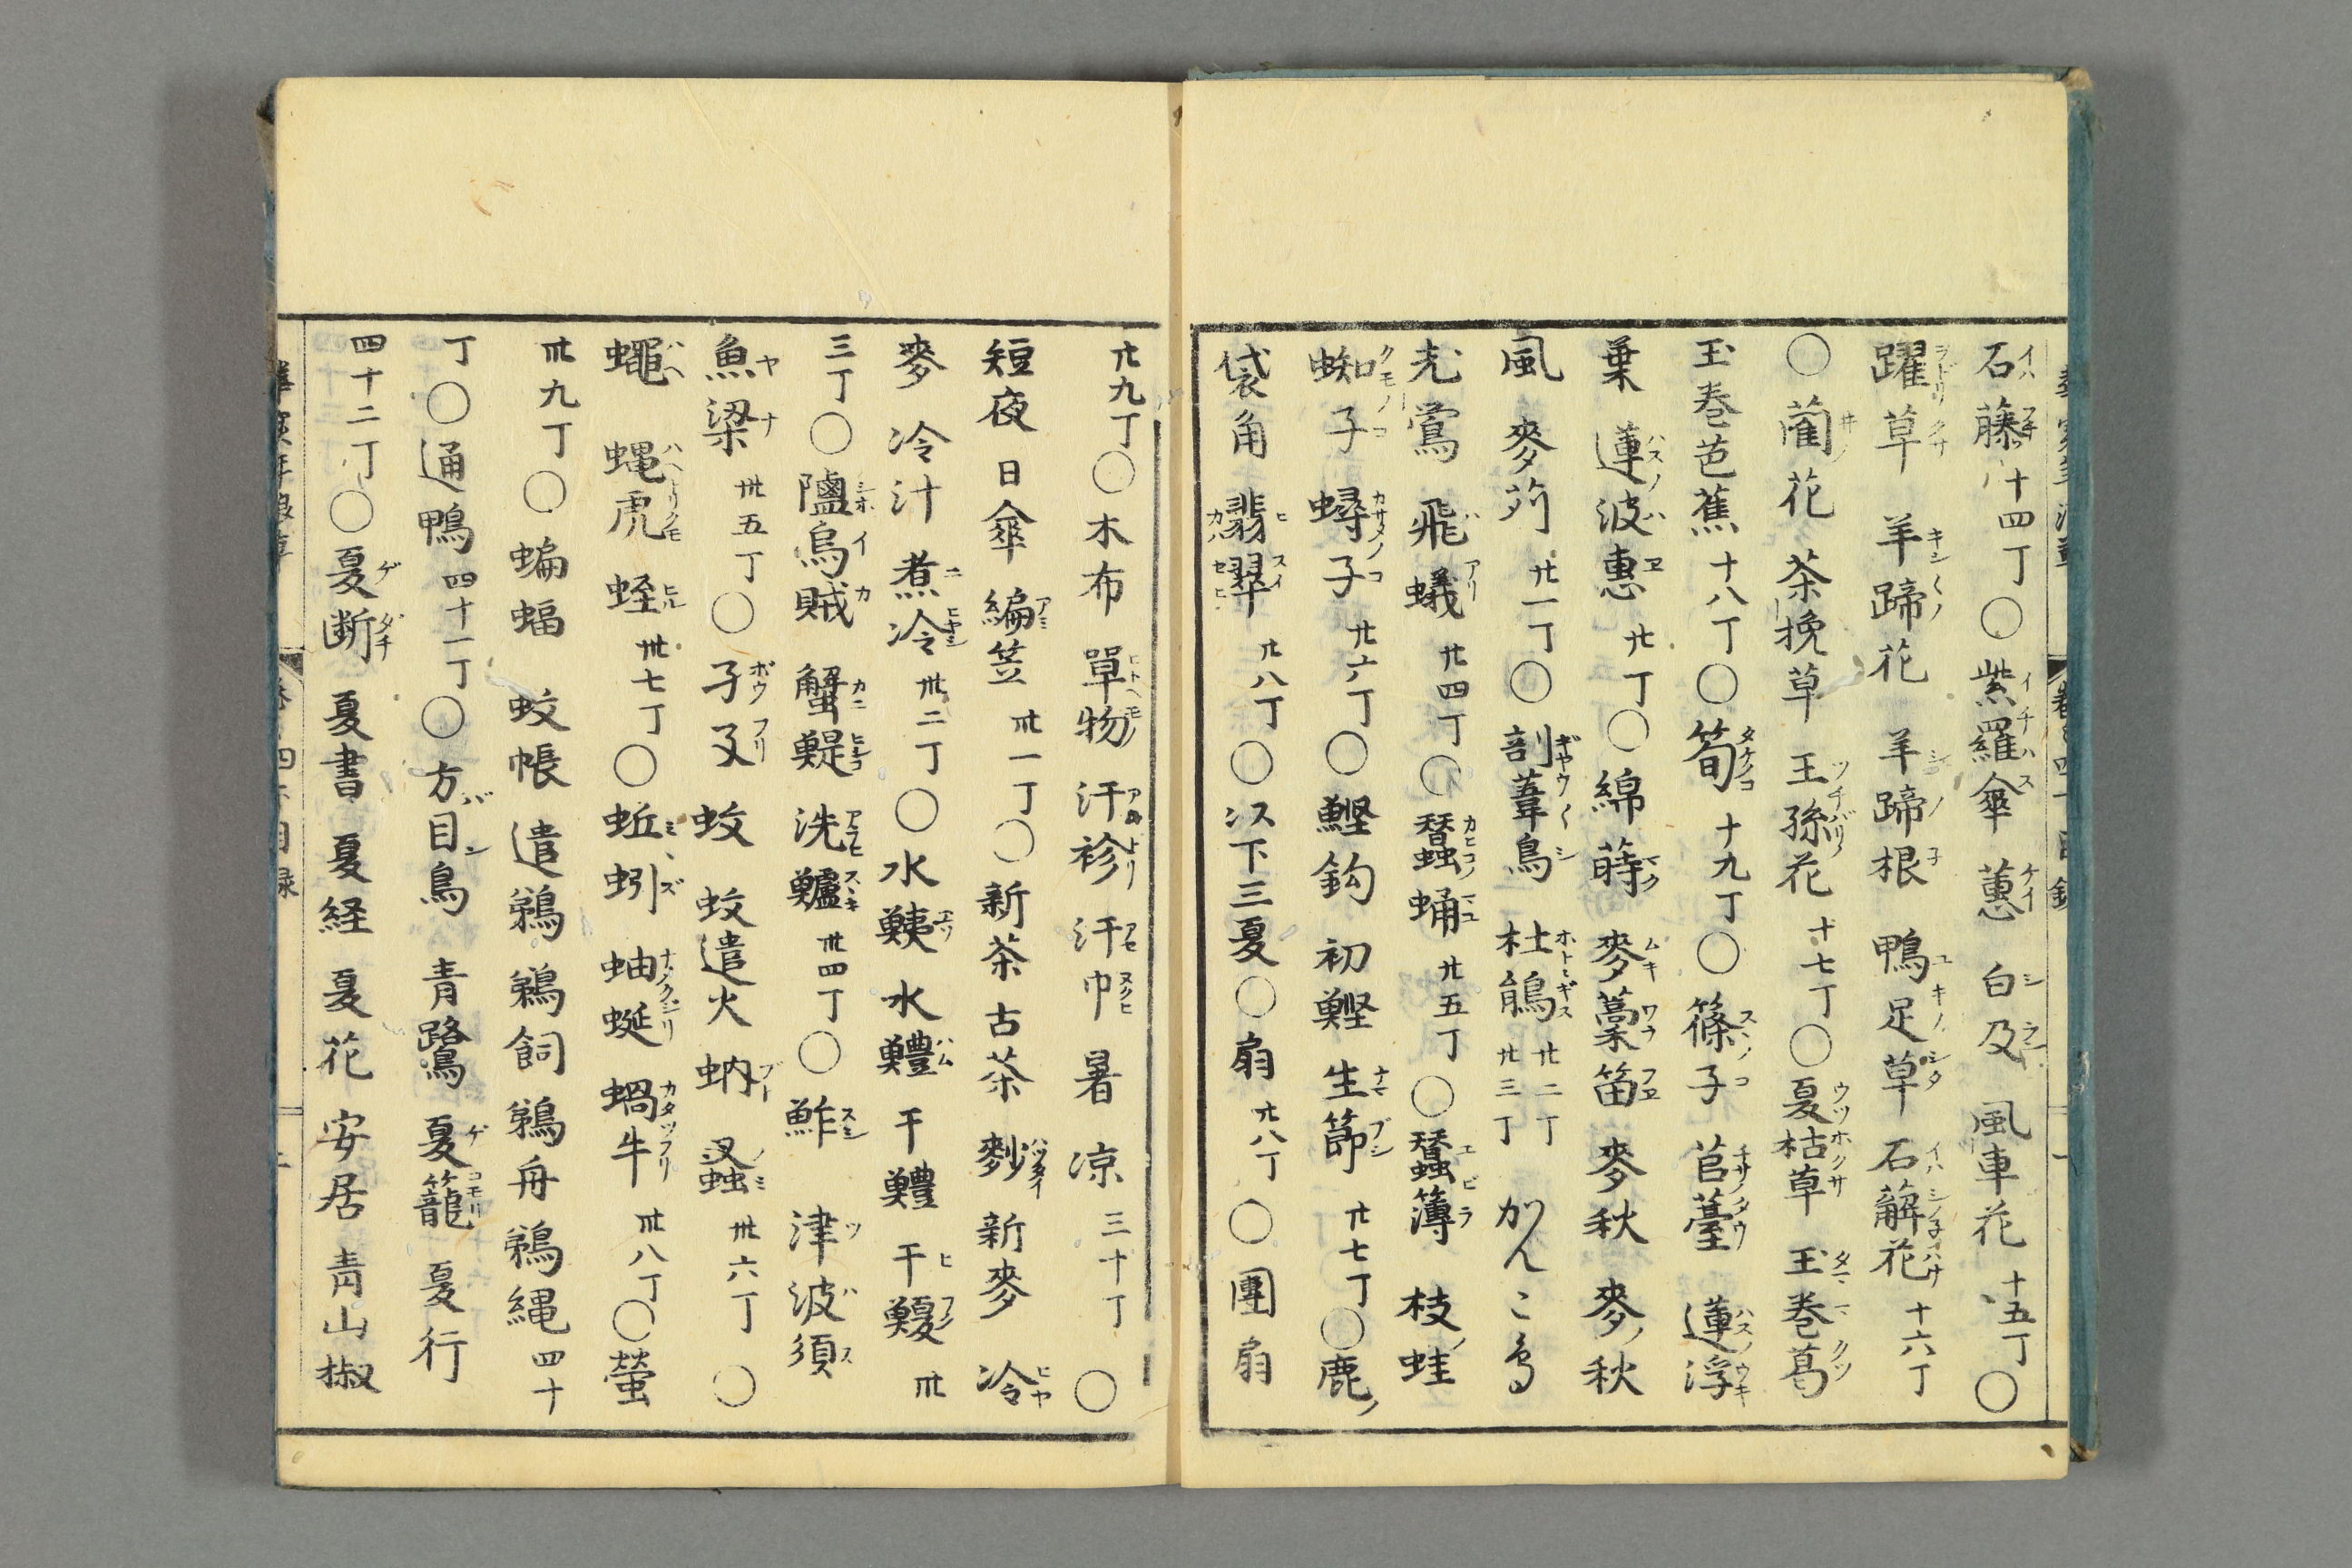 石藤 十四丁 ○ 紫羅傘 蕙 白及 風車花 十五丁 ○
躍草 羊蹄花 羊蹄根 鴨足草 石薢花 十六丁
○ 藺花 茶挽草 王孫花 十七丁 ○ 夏枯草 玉巻葛
玉巻芭蕉 十八丁 ○ 筍 十九丁 ○ 篠子 苣薹 蓮浮
葉 蓮波惠 廿丁 ○ 綿蒔 麥藁笛 麥秋 麥ノ秋
風 麥苅 廿一丁 ○ 剖葦鳥 杜鵑 廿二丁 廿三丁 かんこ鳥
老鴬 飛蟻 廿四丁 ○ 蠶蛹 廿五丁 ○ 蠶簿 枝ノ蛙
蜘子 蟳子 廿六丁 ○ 鰹釣 初鰹 生節 廿七丁 ○ 鹿ノ
袋角 翡翠 廿八丁 ○ 以下三夏 ○ 扇 廿八丁 ○ 團扇
廿九丁 ○ 木布 單物 汗袗 汗巾 暑 凉 三十丁 ○
短夜 日傘 編笠 卅一丁 ○ 新茶 古茶 麨 新麥 冷
麥 冷汁 煮冷 卅二丁 ○ 水鮧 水鱧 干鱧 干鰒 卅
三丁 ○ 鹽烏賊 蟹鯷 洗鱸 卅四丁 ○ 鮓 津波須
魚梁 卅五丁 ○ 孑孓 蚊 蚊遣火 蚋 蚤 卅六丁 ○
蠅 蝿虎 蛭 卅七丁 ○ 蚯蚓 蚰蜒 蝸牛 卅八丁 ○ 螢
卅九丁 ○ 蝙蝠 蚊帳 遣鵜 鵜飼 鵜舟 鵜縄 四十
丁 ○ 通鴨 四十一丁 ○ 方目鳥 青鷺 夏籠 夏行
四十二丁 ○ 夏断 夏書 夏経 夏花 安居 青山椒